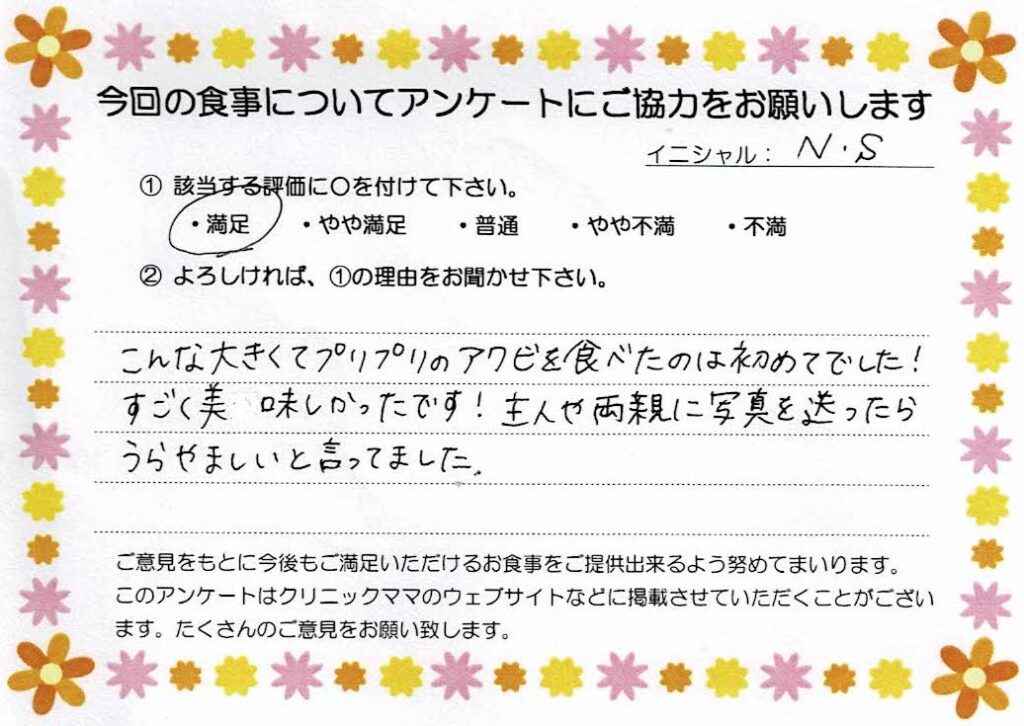 今回の食事についてアンケートにご協力をお願いします
イニシャル： N・S
① 該当する評価に〇を付けて下さい。
・満足 ・やや満足 ・普通 ・やや不満 ・不満
② よろしければ、①の理由をお聞かせ下さい。
こんな大きくてプリプリのアワビを食べたのは初めてでした！
すごく美味しかったです！主人や両親に写真を送ったら
うらやましいと言ってました。
ご意見をもとに今後もご満足いただけるお食事をご提供出来るよう努めてまいります。
このアンケートはクリニックママのウェブサイトなどに掲載させていただくことがござい
ます。たくさんのご意見をお願い致します。